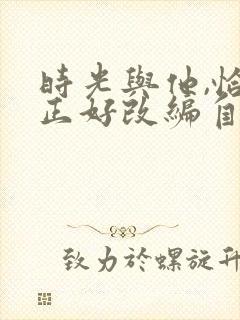 時光與他,恰
正好改編自
致力於螺旋升